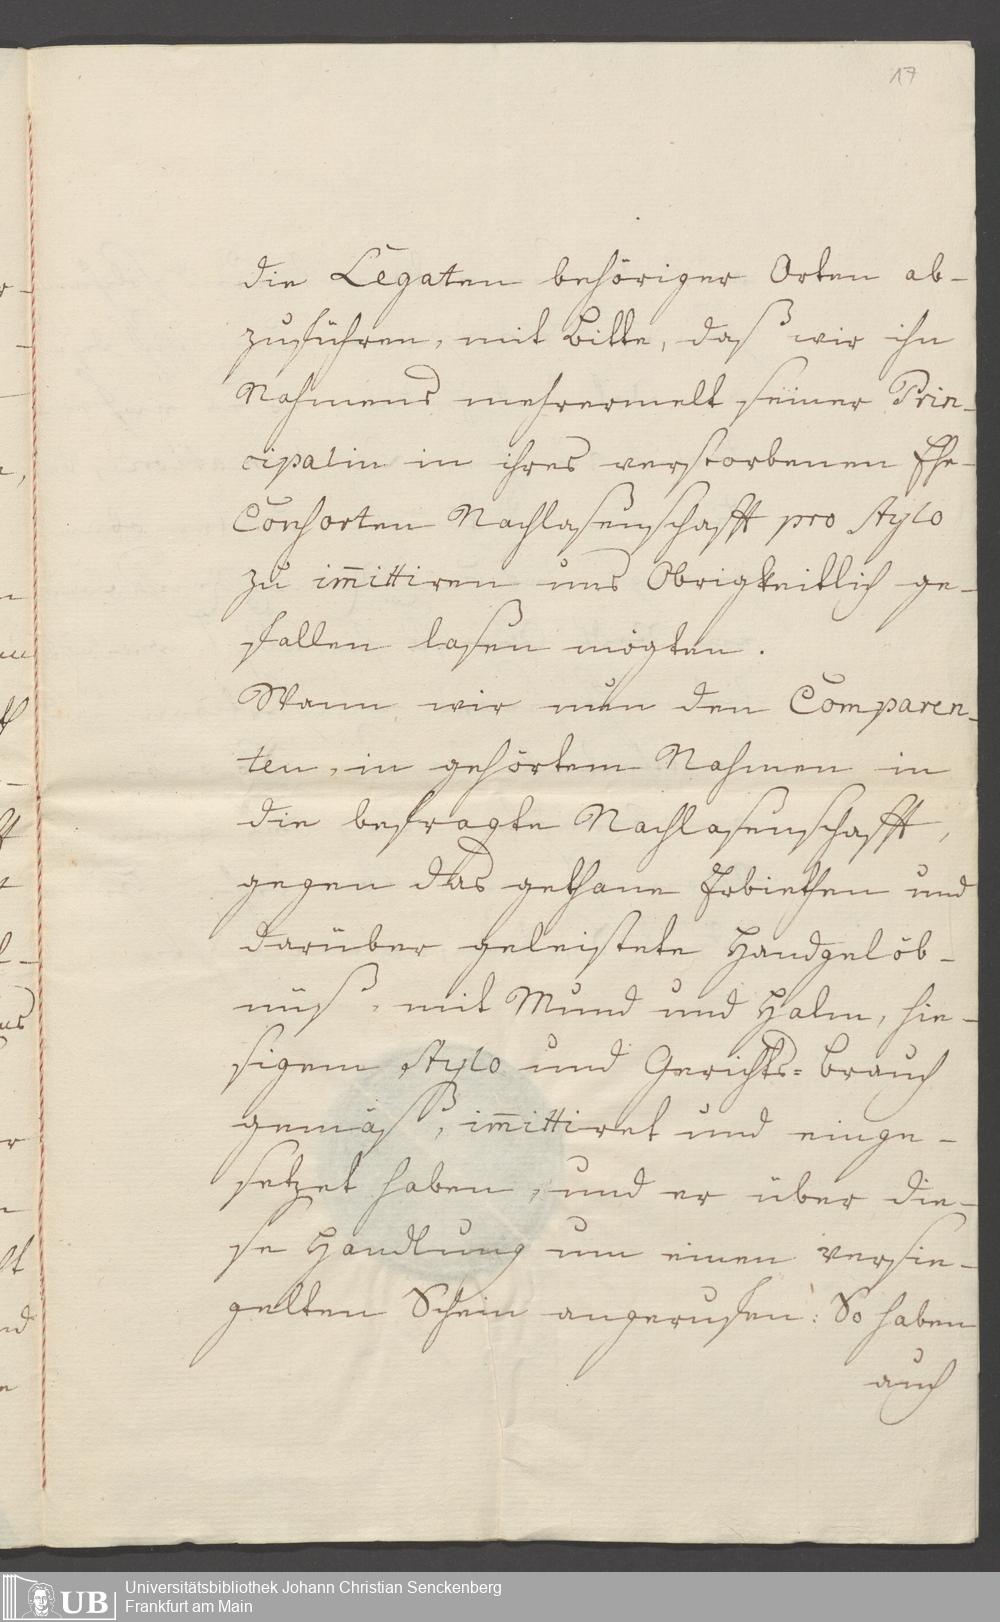 17
die Legaten behöriger Orten ab-
zuführen, mit Bitte, daß wir ihn
Nahmens mehrermelt seiner Prin-
cipalin in ihres verstorbenen Ehe-
Consorten Nachlasenschafft pro stylo
zu im̄ittiren uns Obrigkeitlich ge-
fallen lasen mögten.
Wann wir nun den Comparen-
ten, in gehörtem Nahmen in
die besragte Nachlasenschafft,
gegen das gethane Erbiethen und
darüber geleistete Handgelöb-
nüß, mit Mund und Halm, hie-
sigem stylo und Gerichts-brauch
gemäß, im̄ittiret und einge-
setzet haben, und er über die-
se Handlung um einen versie-
gelten Schein angerufen: So haben
auch
UB
Universitätsbibliothek Johann Christian Senckenberg
Frankfurt am Main